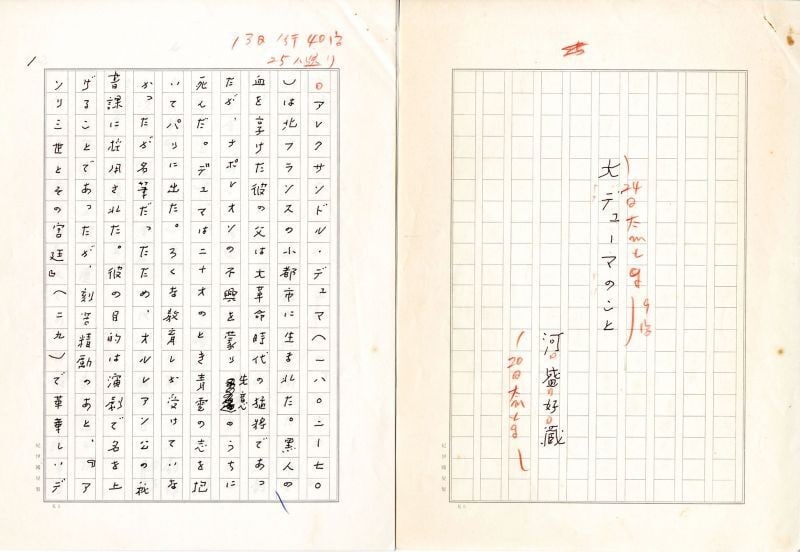 大デューマのこと
河盛好蔵
紀伊國屋製
1
アレクサンドル・デュマ(一八〇二ー七〇
)は北フランスの小都市に生まれた。黒人の
血を享けた彼の父は大革命時代の猛将であっ
たが、ナポレオンの不興を蒙り失意のうちに
死んだ。デュマは二十才のとき青雲の志を抱
いてパリに出た。ろくな教育しか受けていな
かったが名筆だったため、オルレアン公の秘
書課に採用された。彼の目的は演劇で名を上
げることであったが、刻苦精励のあと、『ア
ンリ三世とその宮廷』(二九)で華華しいデ
紀伊國屋製